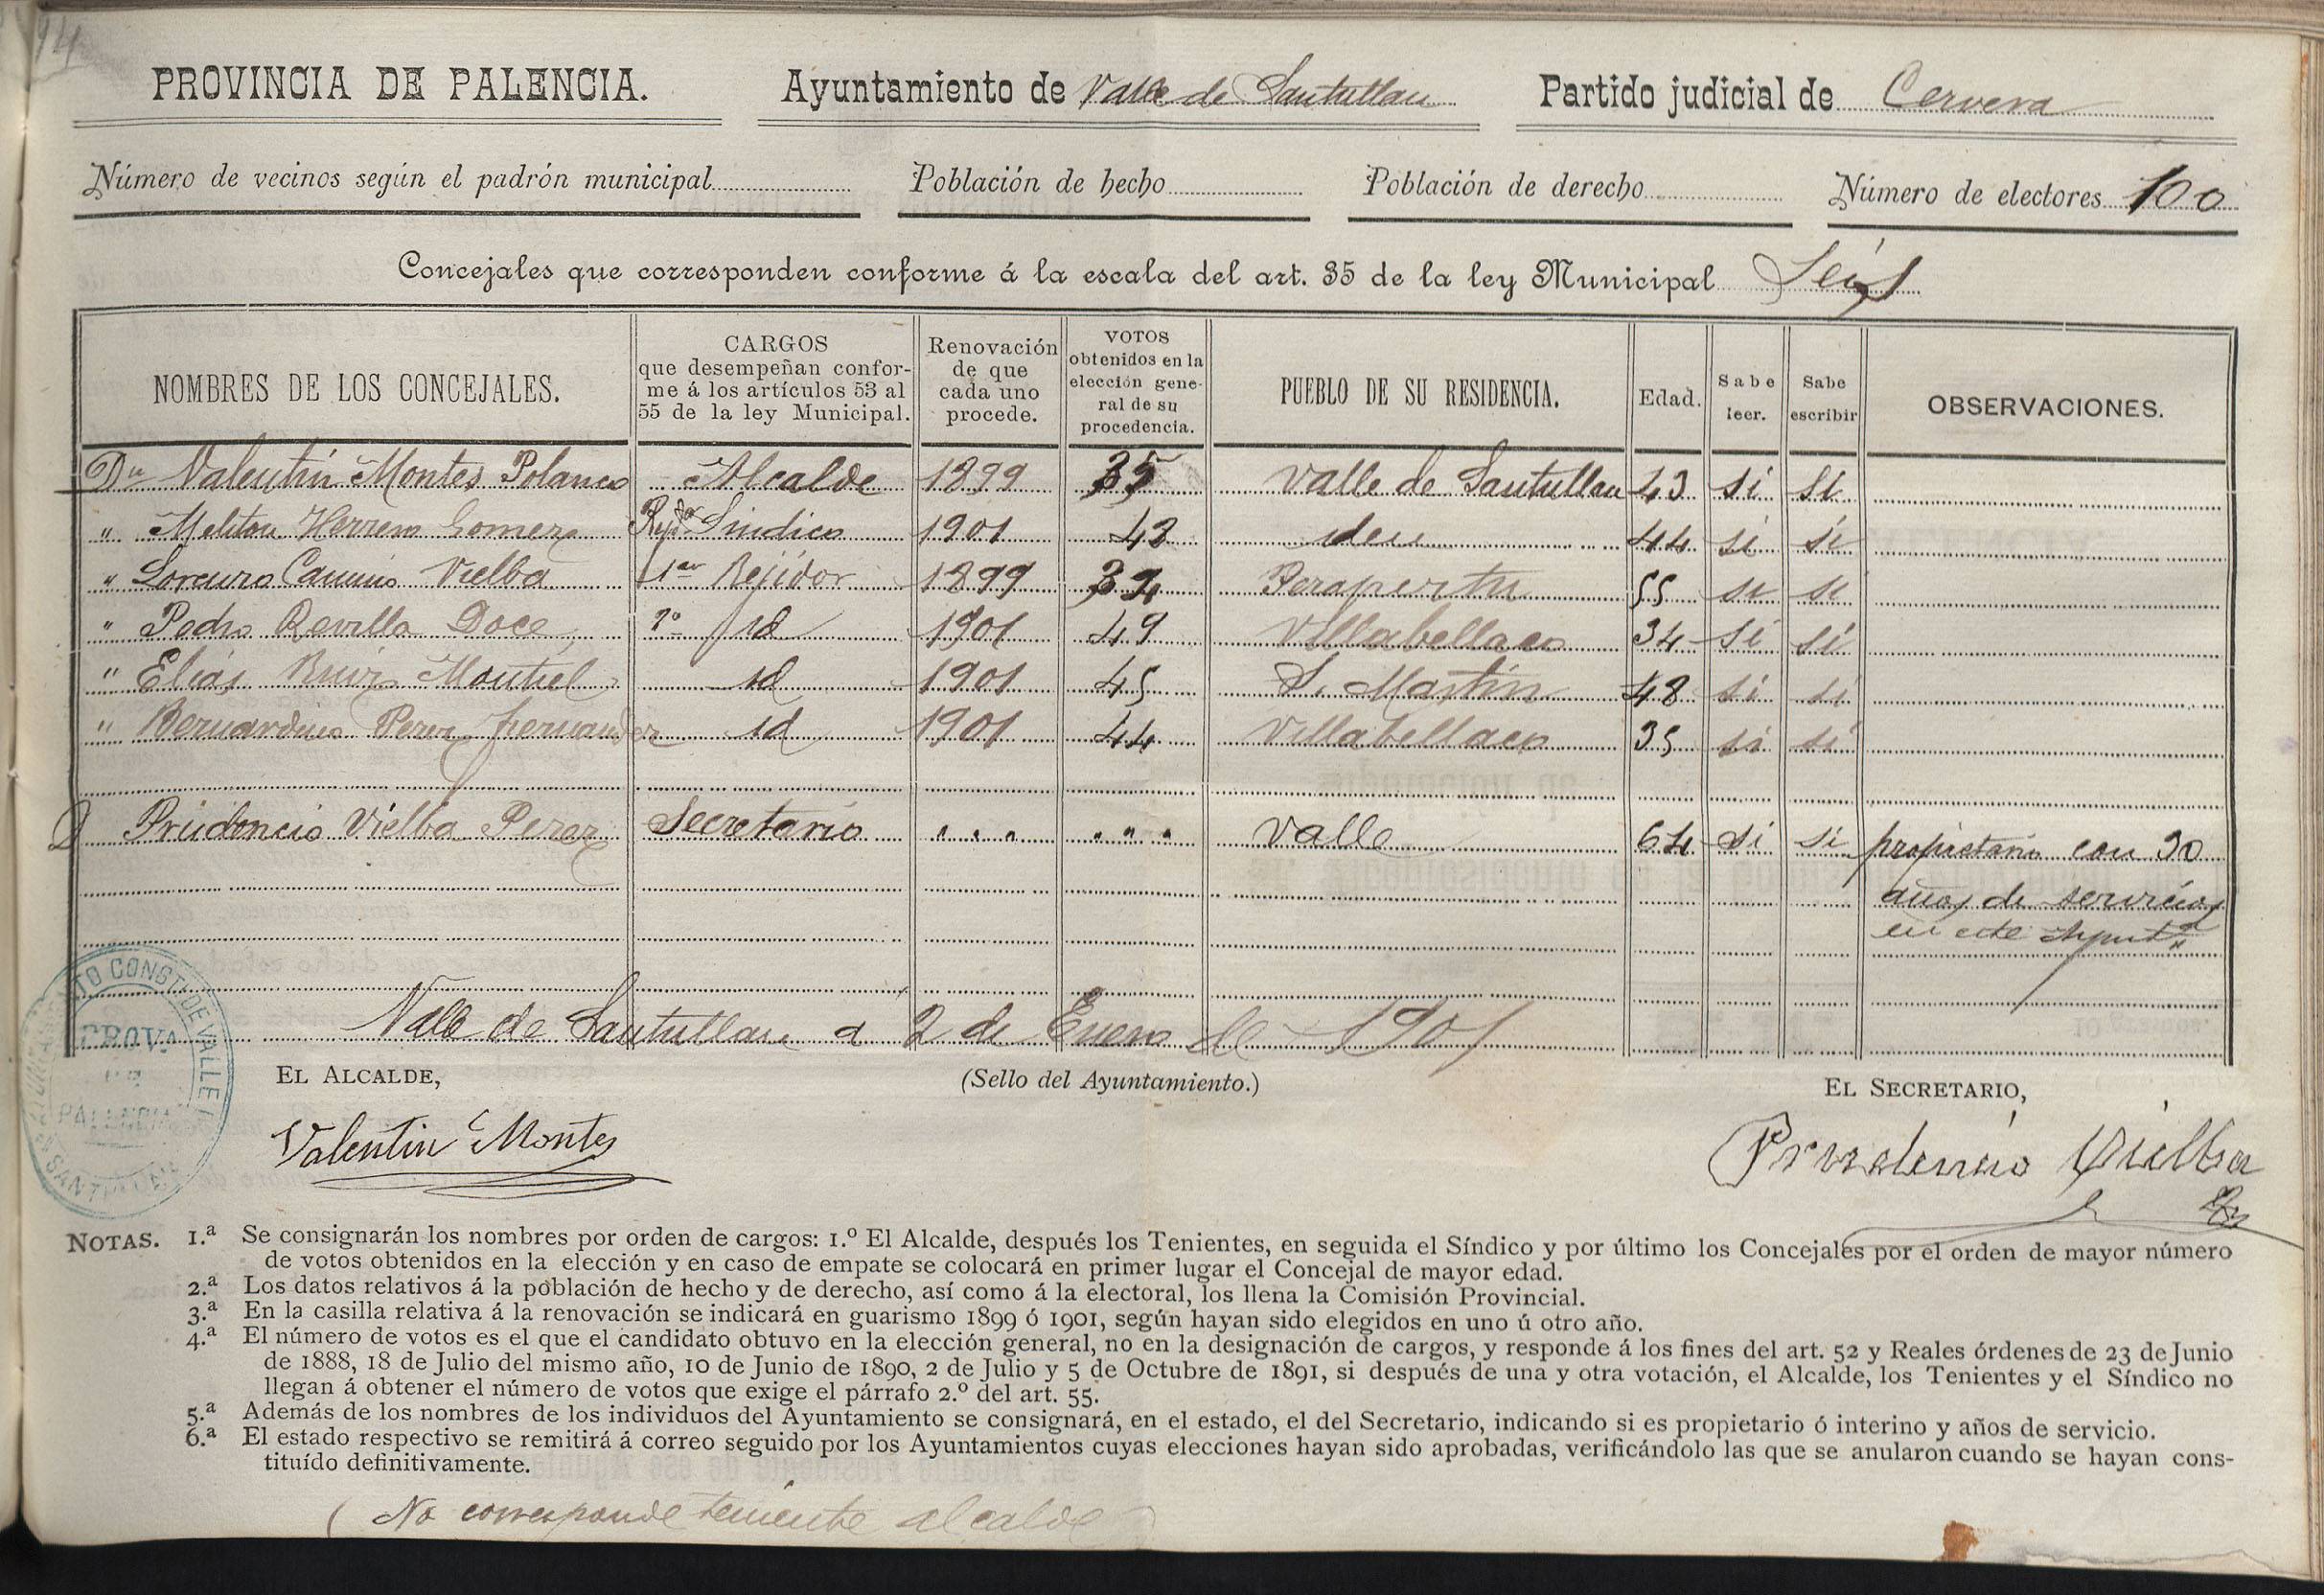 PROVINCIA DE PALENCIA. Ayuntamiento de Valle de Santullan Partido judicial de Cervera
Número de vecinos según el padrón municipal Población de hecho Población de derecho Número de electores 100
Concejales que corresponden conforme á la escala del art. 35 de la ley Municipal Seis
NOMBRES DE LOS CONCEJALES. CARGOS que desempeñan confor- me á los artículos 53 al 55 de la ley Municipal. Renovación de que cada uno procede. VOTOS obtenidos en la elección gene- ral de su procedencia. PUEBLO DE SU RESIDENCIA. Edad. Sabe leer. Sabe escribir OBSERVACIONES.
Dn Valentín Montes Polanco Alcalde 1899 35 Valle de Santullan 43 si si
" Meliton Herrero Gomez Rejdor Sindico 1901 48 iden 44 si si
" Lorenzo Camino Vielba 1er Rejidor 1899 34 Perapertu 55 si si
" Pedro Revilla Doce 2o id 1901 49 Villabellaco 34 si si
" Elías Ruiz Montiel id 1901 45 S. Martin 48 si si
" Bernardino Perez fernandez id 1901 44 Villabellaco 35 si si
Prudencio Vielba Perez Secretario " " " " " " Valle 64 si si propietario con 30
años de servicios
en este Ayuntº
Valle de Santullan a 2 de Enero de 1901
EL ALCALDE, (Sello del Ayuntamiento.) EL SECRETARIO,
Valentin Montes Prudencio Vielba
NOTAS. 1.ª Se consignarán los nombres por orden de cargos: 1.º El Alcalde, después los Tenientes, en seguida el Síndico y por último los Concejales por el orden de mayor número
de votos obtenidos en la elección y en caso de empate se colocará en primer lugar el Concejal de mayor edad.
2.ª Los datos relativos á la población de hecho y de derecho, así como á la electoral, los llena la Comisión Provincial.
3.ª En la casilla relativa á la renovación se indicará en guarismo 1899 ó 1901, según hayan sido elegidos en uno ú otro año.
4.ª El número de votos es el que el candidato obtuvo en la elección general, no en la designación de cargos, y responde á los fines del art. 52 y Reales órdenes de 23 de Junio
de 1888, 18 de Julio del mismo año, 10 de Junio de 1890, 2 de Julio y 5 de Octubre de 1891, si después de una y otra votación, el Alcalde, los Tenientes y el Síndico no
llegan á obtener el número de votos que exige el párrafo 2.º del art. 55.
5.ª Además de los nombres de los individuos del Ayuntamiento se consignará, en el estado, el del Secretario, indicando si es propietario ó interino y años de servicio.
6.ª El estado respectivo se remitirá á correo seguido por los Ayuntamientos cuyas elecciones hayan sido aprobadas, verificándolo las que se anularon cuando se hayan cons-
tituído definitivamente.
( No corresponde teniente alcalde